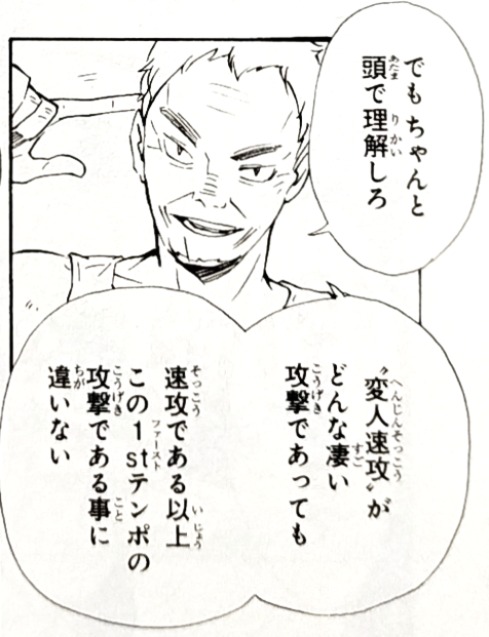 でもちゃんと
頭で理解しろ
〝変人速攻〟が
どんな凄い
攻撃であっても
速攻である以上
この1stテンポの
攻撃である事に
違いない